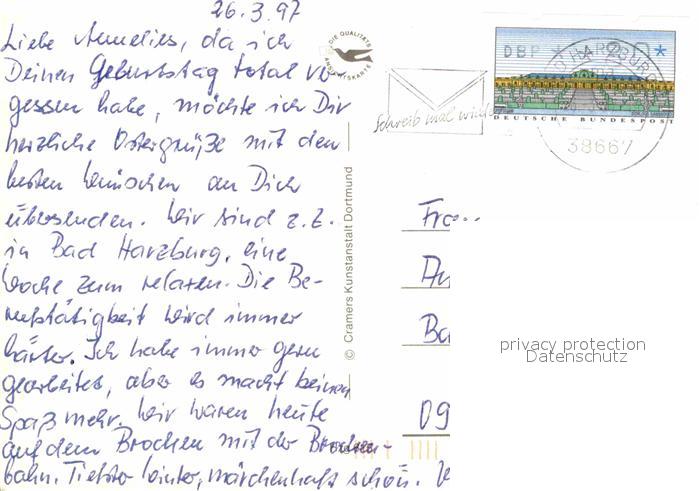 26.3.97
Liebe Annelies, da ich
Deinen Geburtstag total ver-
gessen habe, möchte ich Dir
herzliche Ostergrüße mit den
besten Wünschen an Dich
übersenden. Wir sind z.Z.
in Bad Harzburg, eine
Woche zum relaxen. Die Be-
rufstätigkeit wird immer
härter. Ich habe immer gern
gearbeitet, aber es macht keinen
Spaß mehr. Wir waren heute
auf dem Brocken mit der Brocken-
bahn. Tiefster Winter, märchenhaft schön.
DIE QUALITÄTS
ANSICHTSKARTE
© Cramers Kunstanstalt Dortmund
Schreib mal wieder
DBP
DEUTSCHE BUNDESPOST
HARZBURG
38667
Fra...
An
Ba
09
privacy protection
Datenschutz